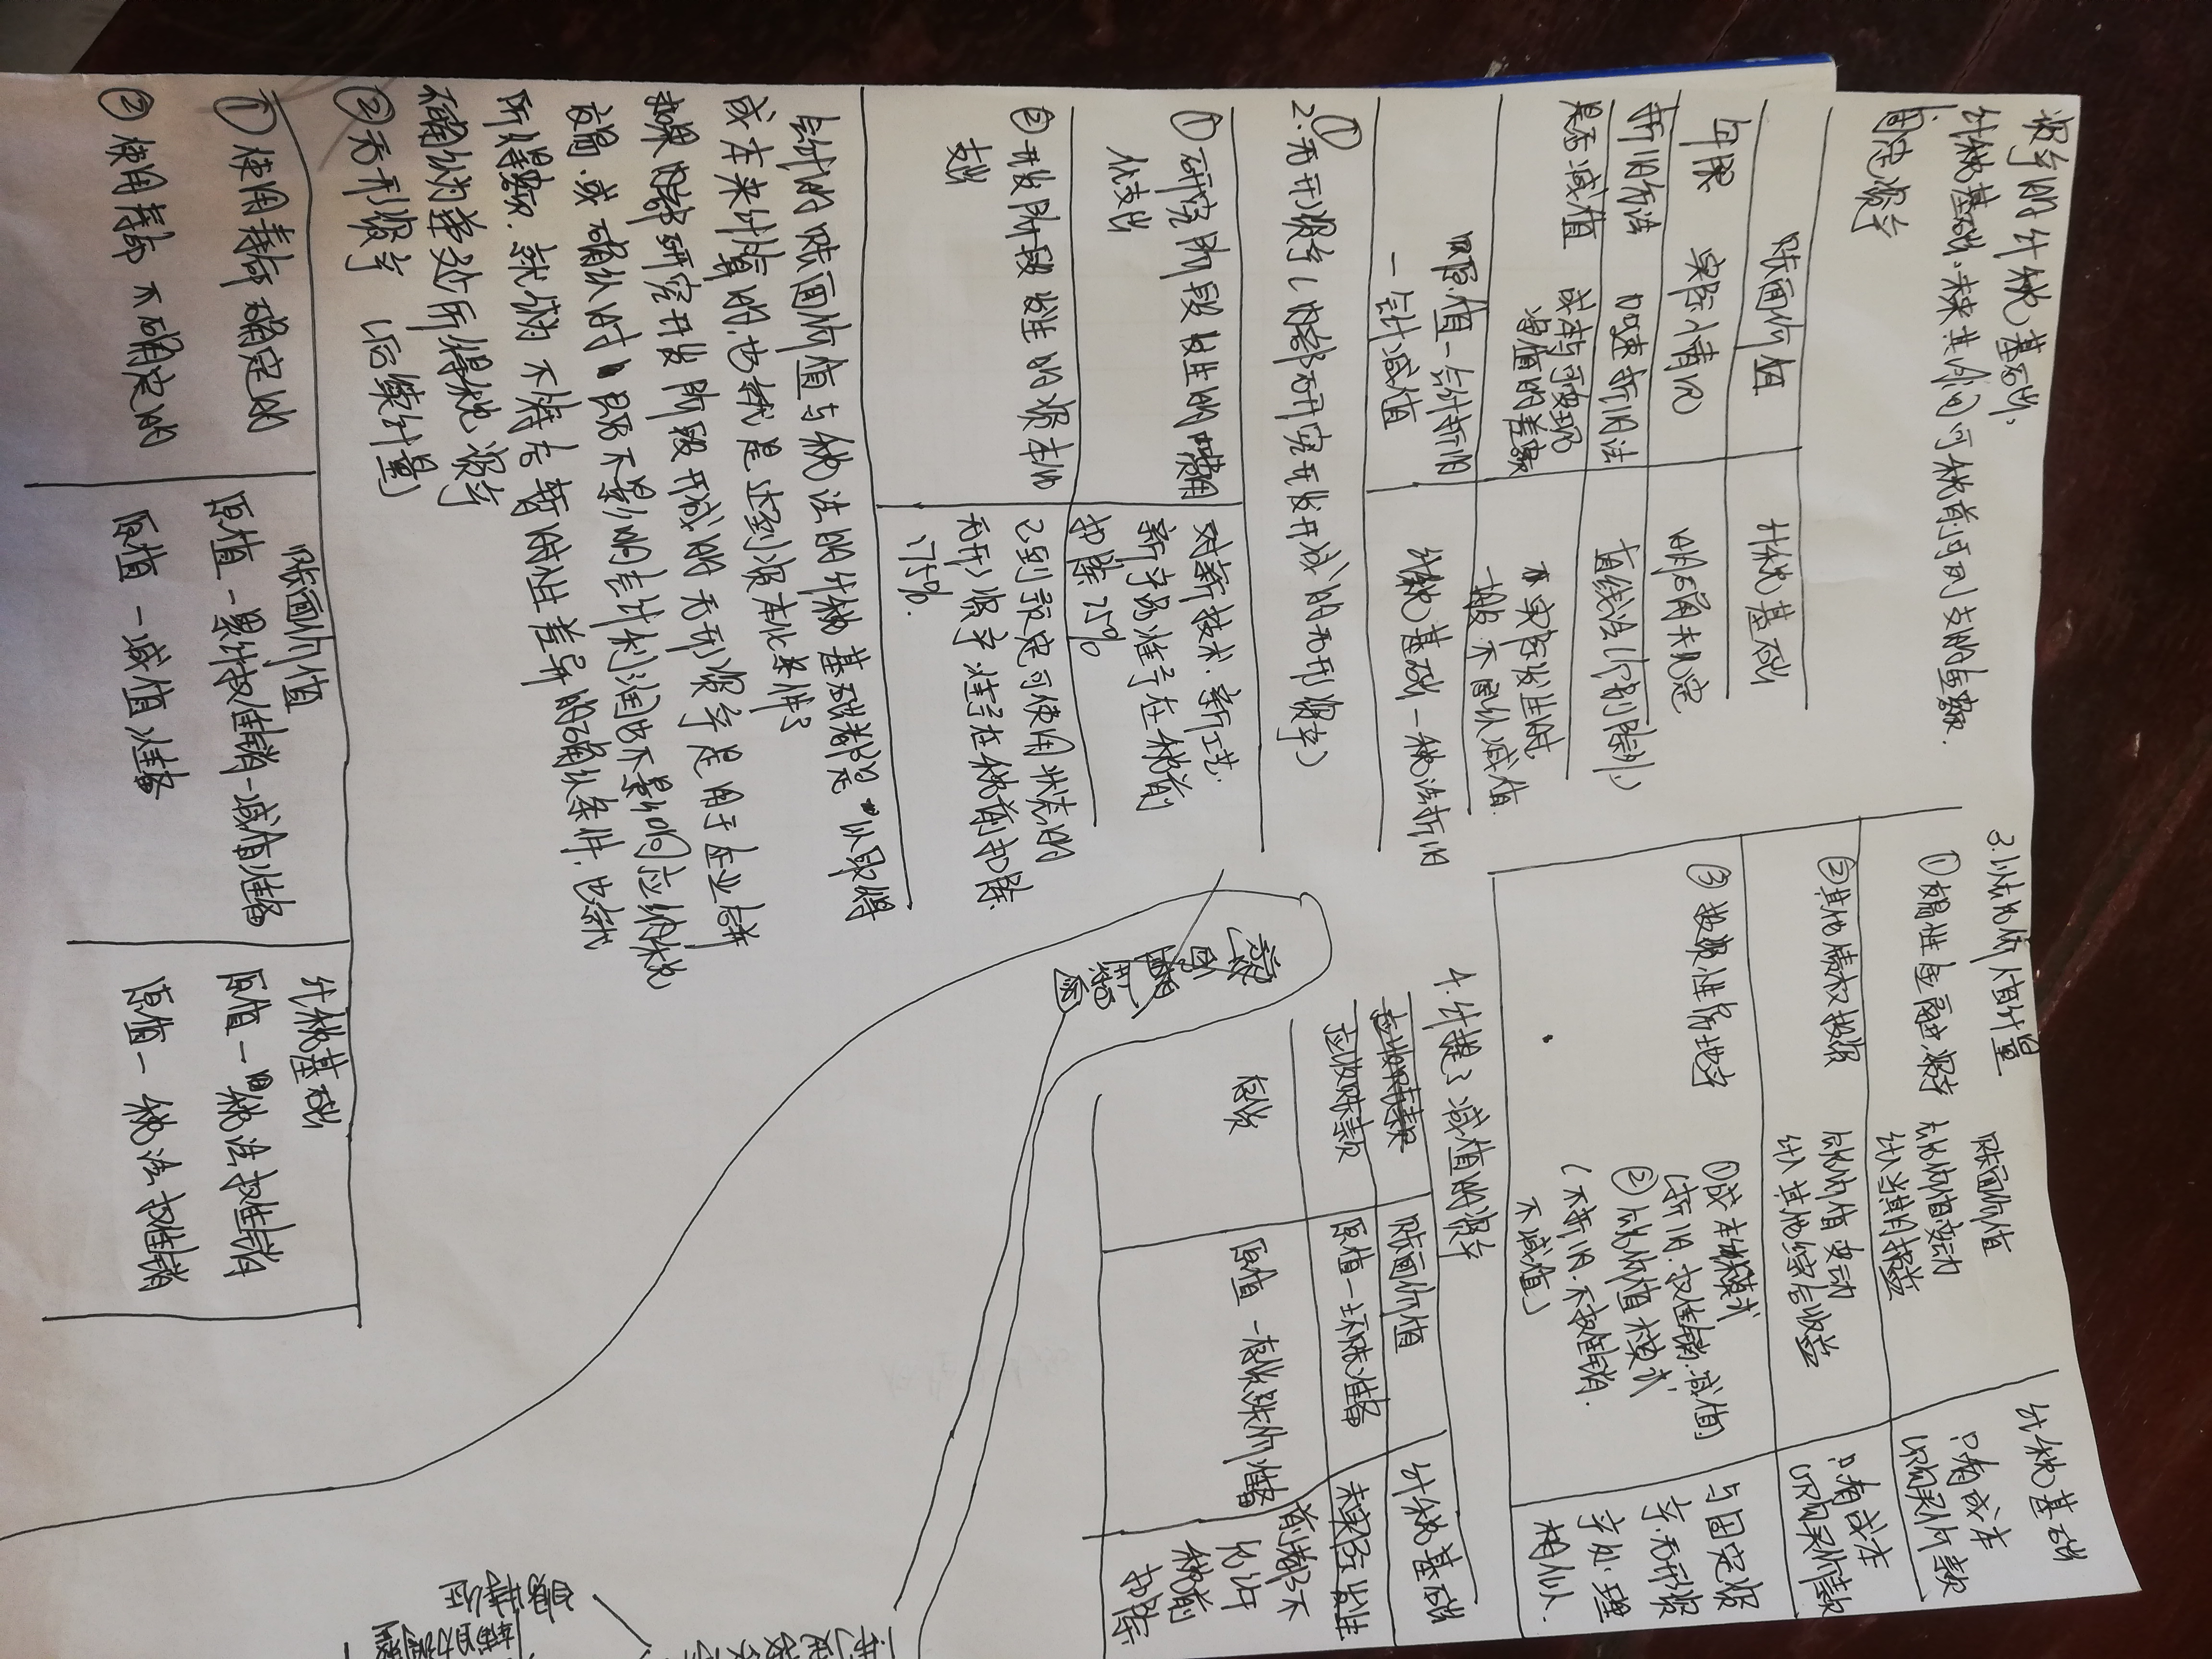 资产的计税基础:
计税基础:未来共们间可税前可列支的金额.
固定资产
账面价值 计税基础
年限 实际情况 明确规定
折旧方法 加速折旧法 直线法(特别除外)
是否减值 成本与可变现
净值的差额 在实际发生时,
一般不确认减值.
原值-会计折旧
-会计减值 计税基础-税法折旧
2.无形资产(内部研究开发形成的无形资产)
①研究阶段发生的费用
化支出 对新技术.新工艺.
新产品准予在税前
扣除75%
②开发阶段发生的资本化
支出 已到预定可使用状态的
无形资产准予在税前扣除.
175%.
会计的账面价值与税法的计税基础都是"从取得
成本来计算的.也就是达到资本化条件了
如果内部研究开发阶段形成的无形资产是用于企业合并
交易.或确认时即不影响会计利润也不影响应纳税
所得额.就认为不符合暂时性差异的确认条件.也就
不确认为递延所得税资产
②无形资产 (后续计量)
账面价值 计税基础
①使用寿命确定的 原值-累计摊销-减值准备 原值-累税法摊销
②使用寿命不确定的 原值-减值准备 原值-税法摊销
3.以公允价值计量 账面价值 计税基础
①交易性金融资产 公允价值变动
计入当期损益 只有成本
即购买价款
②其他债权投资 公允价值变动
计入其他综合收益 只有成本
即购买价款
③投资性房地产 ①成本模式
(折旧.摊销.减值)
②公允价值模式
(不折旧.不摊销.
不减值) 与固定资
产.无形资
产处理
相似.
4.计提了减值的资产
账面价值 计税基础
应收账款 原值-坏账准备 未实际发生
前都不
允许
税前
扣除
存货 原值-存货跌价准备